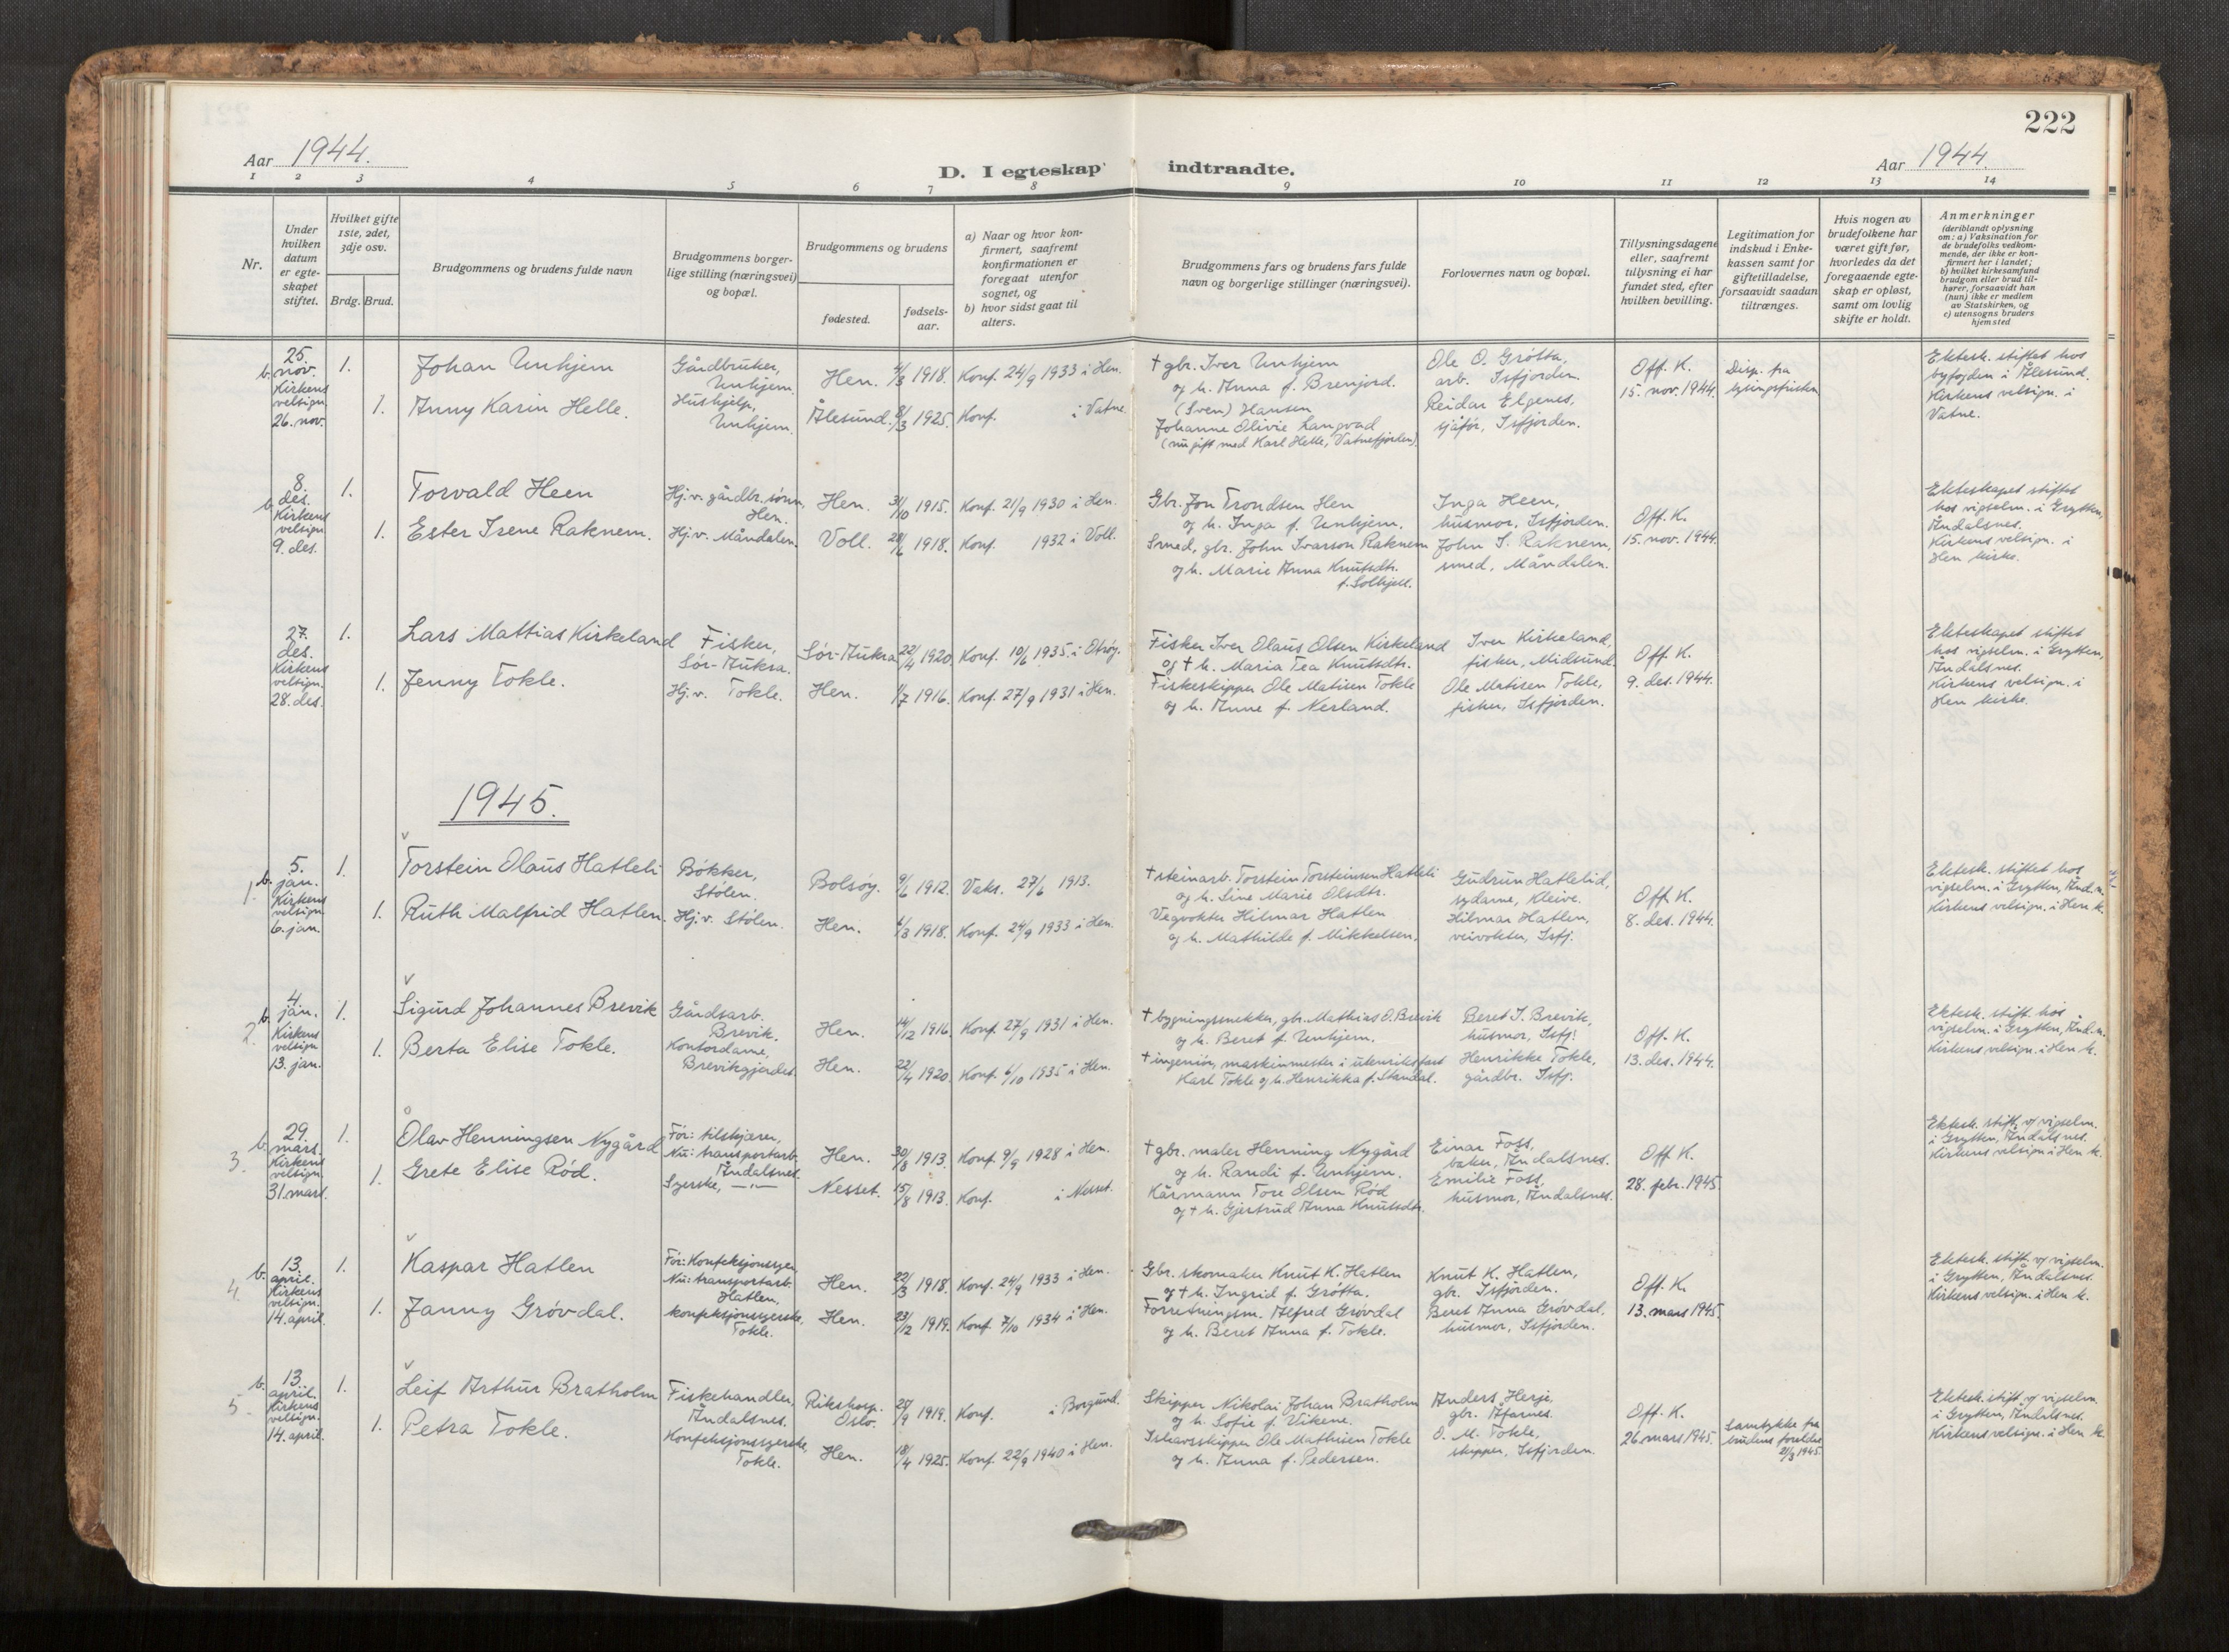 222
Aar 1944.
D. I egteskap indtraadte.
Aar 1944.
1 2 3 4 5 6 7 8 9 10 11 12 13 14
Nr.
Under
hvilken
datum
er egte-
skapet
stiftet.
Hvilket gifte
1ste, 2det,
3dje osv.
Brdg. Brud.
Brudgommens og brudens fulde navn
Brudgommens borger-
lige stilling (næringsvei)
og bopæl.
Brudgommens og brudens
fødested.
fødsels-
aar.
a) Naar og hvor kon-
firmert, saafremt
konfirmationen er
foregaat utenfor
sognet, og
b) hvor sidst gaat til
alters.
Brudgommens fars og brudens fars fulde
navn og borgerlige stillinger (næringsvei).
Forlovernes navn og bopæl.
Tillysningsdagene
eller, saafremt
tillysning ei har
fundet sted, efter
hvilken bevilling.
Legitimation for
indskud i Enke-
kassen samt for
giftetilladelse,
forsaavidt saadan
tiltrænges.
Hvis nogen av
brudefolkene har
været gift før,
hvorledes da det
foregaaende egte-
skap er opløst,
samt om lovlig
skifte er holdt.
Anmerkninger
(deriblandt oplysning
om: a) Vaksination for
de brudefolks vedkom-
mende, der ikke er kon-
firmert her i landet;
b) hvilket kirkesamfund
brudgom eller brud til-
hører, forsaavidt han
(hun) ikke er medlem
av Statskirken, og
c) utensogns bruders
hjemsted
b. 25.
nov.
Kirkens
velsign.
26. nov.
1.
1.
Johan Unhjem
Anny Karin Helle.
Gårdbruker,
Unhjem.
Hushjelp,
Unhjem.
Hen. 4/3 1918. Konf. 24/9 1933 i Hen.
Ålesund. 8/3 1925. Konf. i Vatne.
† gbr. Iver Unhjem
og h. Anna f. Brenjord.
(Sven) Hansen
Johanne Olivie Langvad
(nu gift med Karl Helle, Vatnefjorden)
Ole O. Grøtta,
arb. Isfjorden.
Reidar Elgenes,
sjåfør, Isfjorden.
Off. K.
15. nov. 1944.
Disp. fra
lysingsfristen
Ektesk. stiftet hos
byfogden i Ålesund.
Kirkens velsign. i
Vatne.
b. 8.
des.
Kirkens
velsign.
9. des.
1.
1.
Torvald Heen
Ester Irene Raknem.
Hj.v. gårdbr. sønn,
Hen.
Hj.v. Måndalen.
Hen. 31/10 1915. Konf. 21/9 1930 i Hen.
Voll. 28/6 1918. Konf. 1932 i Voll.
Gbr. Jon Trondsen Hen
og h. Inga f. Unhjem.
Smed, gbr. John Ivarson Raknem
og h. Marie Anna Knutsdtr.
f. Solhjell.
Inga Heen,
husmor, Isfjorden.
John I. Raknem,
smed, Måndalen.
Off. K.
15. nov. 1944.
Ekteskapet stiftet
hos vigselm. i Grytten,
Åndalsnes.
Kirkens velsign. i
Hen kirke.
27.
des.
Kirkens
velsign.
28. des.
1.
1.
Lars Mattias Kirkeland
Jenny Tokle.
Fisker,
Sør-Aukra.
Hj.v. Tokle.
Sør-Aukra 22/4 1920. Konf. 10/6 1935. i Otrøy.
Hen. 1/7 1916. Konf. 27/9 1931 i Hen.
Fisker Iver Olaus Olsen Kirkeland
og † h. Maria Tea Knutsdtr.
Fiskeskipper Ole Matisen Tokle
og h. Anne f. Nerland.
Iver Kirkeland,
fisker, Midsund.
Ole Matisen Tokle,
fisker, Isfjorden.
Off. K.
9. des. 1944.
Ekteskapet stiftet
hos vigselm. i Grytten,
Åndalsnes.
Kirkens velsign. i
Hen kirke.
1945.
1. b. 5.
jan.
Kirkens
velsign.
6. jan.
1.
1.
v
Torstein Olaus Hatleli
Ruth Malfrid Hatlen.
Bøkker,
Stølen.
Hj.v. Stølen.
Bolsøy. 9/6 1912. Vaks. 27/6 1913.
Hen. 6/3 1918. Konf. 24/9 1933 i Hen.
† steinarb. Torstein Torsteinsen Hatleli
og h. Sine Marie Olsdtr.
Vegvokter Hilmar Hatlen
og h. Mathilde f. Mikkelsen.
Gudrun Hatlelid,
sydame, Kleive.
Hilmar Hatlen,
veivokter, Isfj.
Off. K.
8. des. 1944.
Ektesk. stiftet hos
vigselm. i Grytten, Ånd.n.
Kirkens velsign. i Hen k.
2. b. 4.
jan.
Kirkens
velsign.
13. jan.
1.
1.
v
Sigurd Johannes Brevik
Berta Elise Tokle.
Gårdsarb.
Brevik.
Kontordame,
Brevikgjerdet.
Hen. 14/12 1916. Konf. 27/9 1931 i Hen.
Hen. 22/4 1920. Konf. 6/10 1935 i Hen.
† bygningssnekker, gbr. Mathias O. Brevik
og h. Beret f. Unhjem.
† ingeniør, maskinmester i utenriksfart
Karl Tokle og h. Henrikka f. Standal.
Beret J. Brevik,
husmor, Isfj.
Henrikke Tokle,
gårdbr. Isfj.
Off. K.
13. des. 1944.
Ektesk. stift. hos
vigselm. i Grytten, Ånd.n.
Kirkens velsign. i Hen k.
3. b. 29.
mars.
Kirkens
velsign.
31. mars.
1.
1.
Olav Henningsen Nygård
Grete Elise Rød.
Før: tilskjærer,
Nu: transportarb.
Åndalsnes.
Syerske, —"—
Hen. 30/8 1913. Konf. 9/9 1928 i Hen.
Nesset. 15/8 1913. Konf. i Nesset.
† gbr. maler Henning Nygård
og h. Randi f. Unhjem.
Kårmann Tore Olsen Rød
og † h. Gjertrud Anna Knutsdtr.
Einar Foss,
baker, Åndalsnes.
Emilie Foss,
husmor, Åndalsnes.
Off K.
28. febr. 1945.
Ektesk. stift. v/ vigselm.
i Grytten, Åndalsnes.
Kirkens velsign i Hen k.
4. b. 13.
april.
Kirkens
velsign.
14. april.
1.
1.
v
Kaspar Hatlen
Janny Grøvdal.
Før: Konfeksjonssyer,
Nu: transportarb.
Hatlen.
konfeksjonssyerske,
Tokle.
Hen. 22/3 1918. Konf. 24/9 1933 i Hen.
Hen. 23/12 1919. Konf. 7/10 1934 i Hen.
Gbr. skomaker Knut K. Hatlen
og † h. Ingrid f. Grøtta.
Forretningsm. Alfred Grøvdal
og h. Beret Anna f. Tokle.
Knut K. Hatlen,
gbr. Isfjorden.
Beret Anna Grøvdal,
husmor, Isfjorden.
Off. K.
13. mars 1945.
Ektesk. stift. v/ vigselm.
i Grytten, Åndalsnes.
Kirkens velsign. i Hen k.
5. b. 13.
april.
Kirkens
velsign.
14. april.
1.
1.
v
Leif Arthur Bratholm
Petra Tokle.
Fiskehandler,
Åndalsnes.
Konfeksjonssyerske,
Tokle.
Rikshosp.
Oslo. 25/9 1919. Konf. i Borgund.
Hen. 18/4 1925. Konf. 22/9 1940 i Hen.
Skipper Nikolai Johan Bratholm
og h. Sofie f. Vikene.
Ishavsskipper Ole Mathisen Tokle
og h. Anna f. Pedersen.
Anders Herje,
gbr. Åfarnes.
O. M. Tokle,
skipper, Isfjorden.
Off. K.
26. mars 1945.
Samtykke fra
brudens foreldre
21/3 1945.
Ektesk. stift. v/ vigselm.
i Grytten, Åndalsnes.
Kirkens velsign. i Hen k.